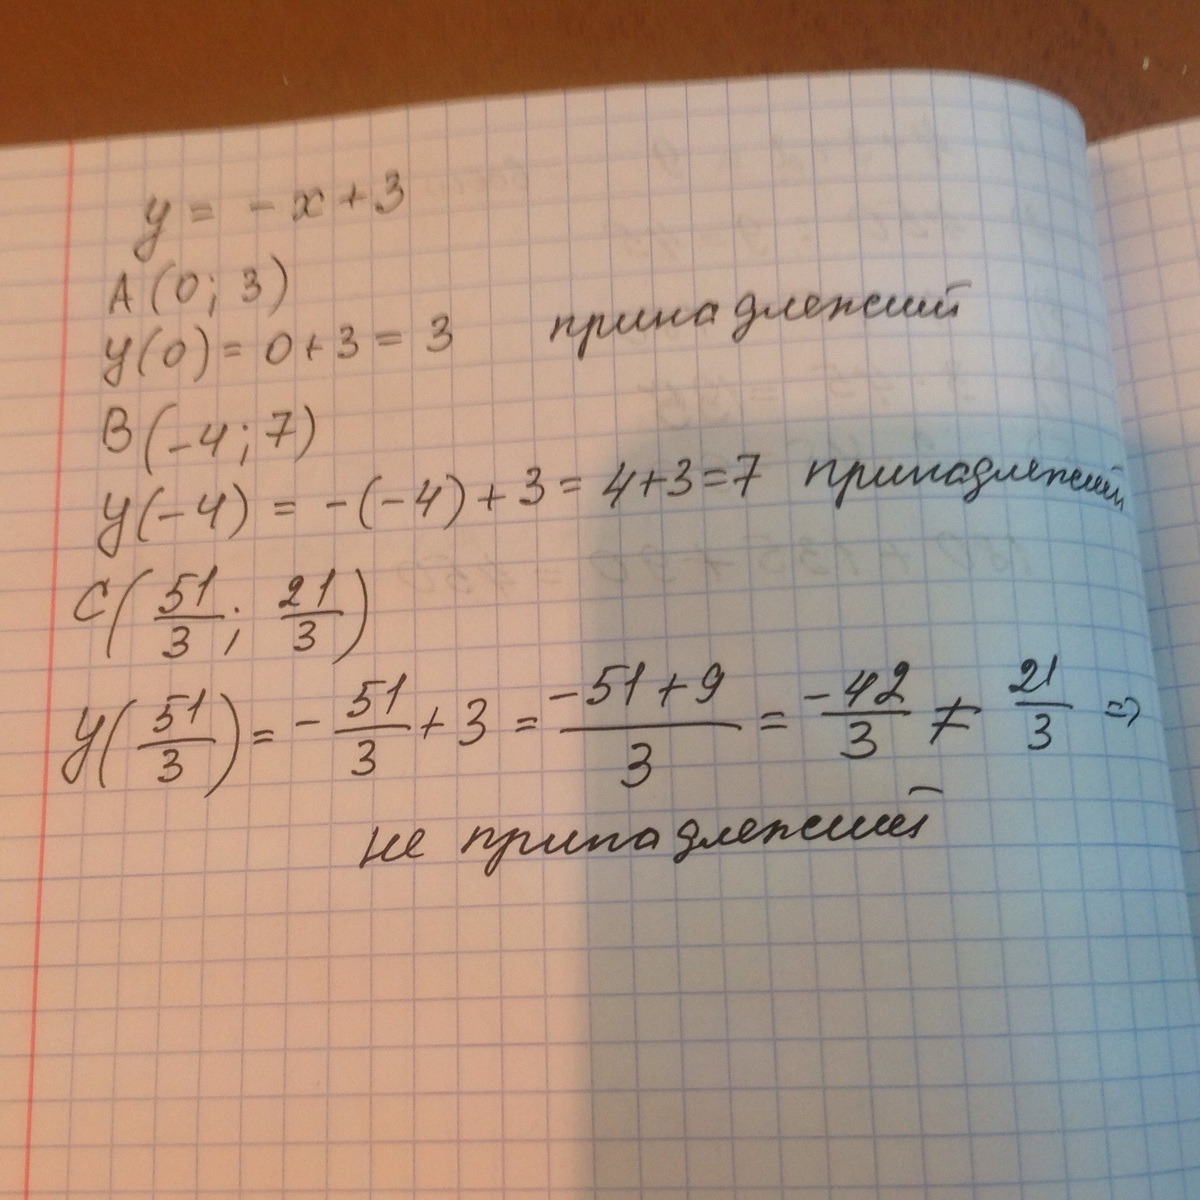 y = - x + 3
A (0; 3)
y(0) = 0 + 3 = 3 принадлежит
B (-4; 7)
y(-4) = -(-4) + 3 = 4+3=7 принадлежит
C(51/3; 21/3)
y(51/3) = - 51/3 + 3 = (-51+9)/3 = -42/3 ≠ 21/3 =>
не принадлежит